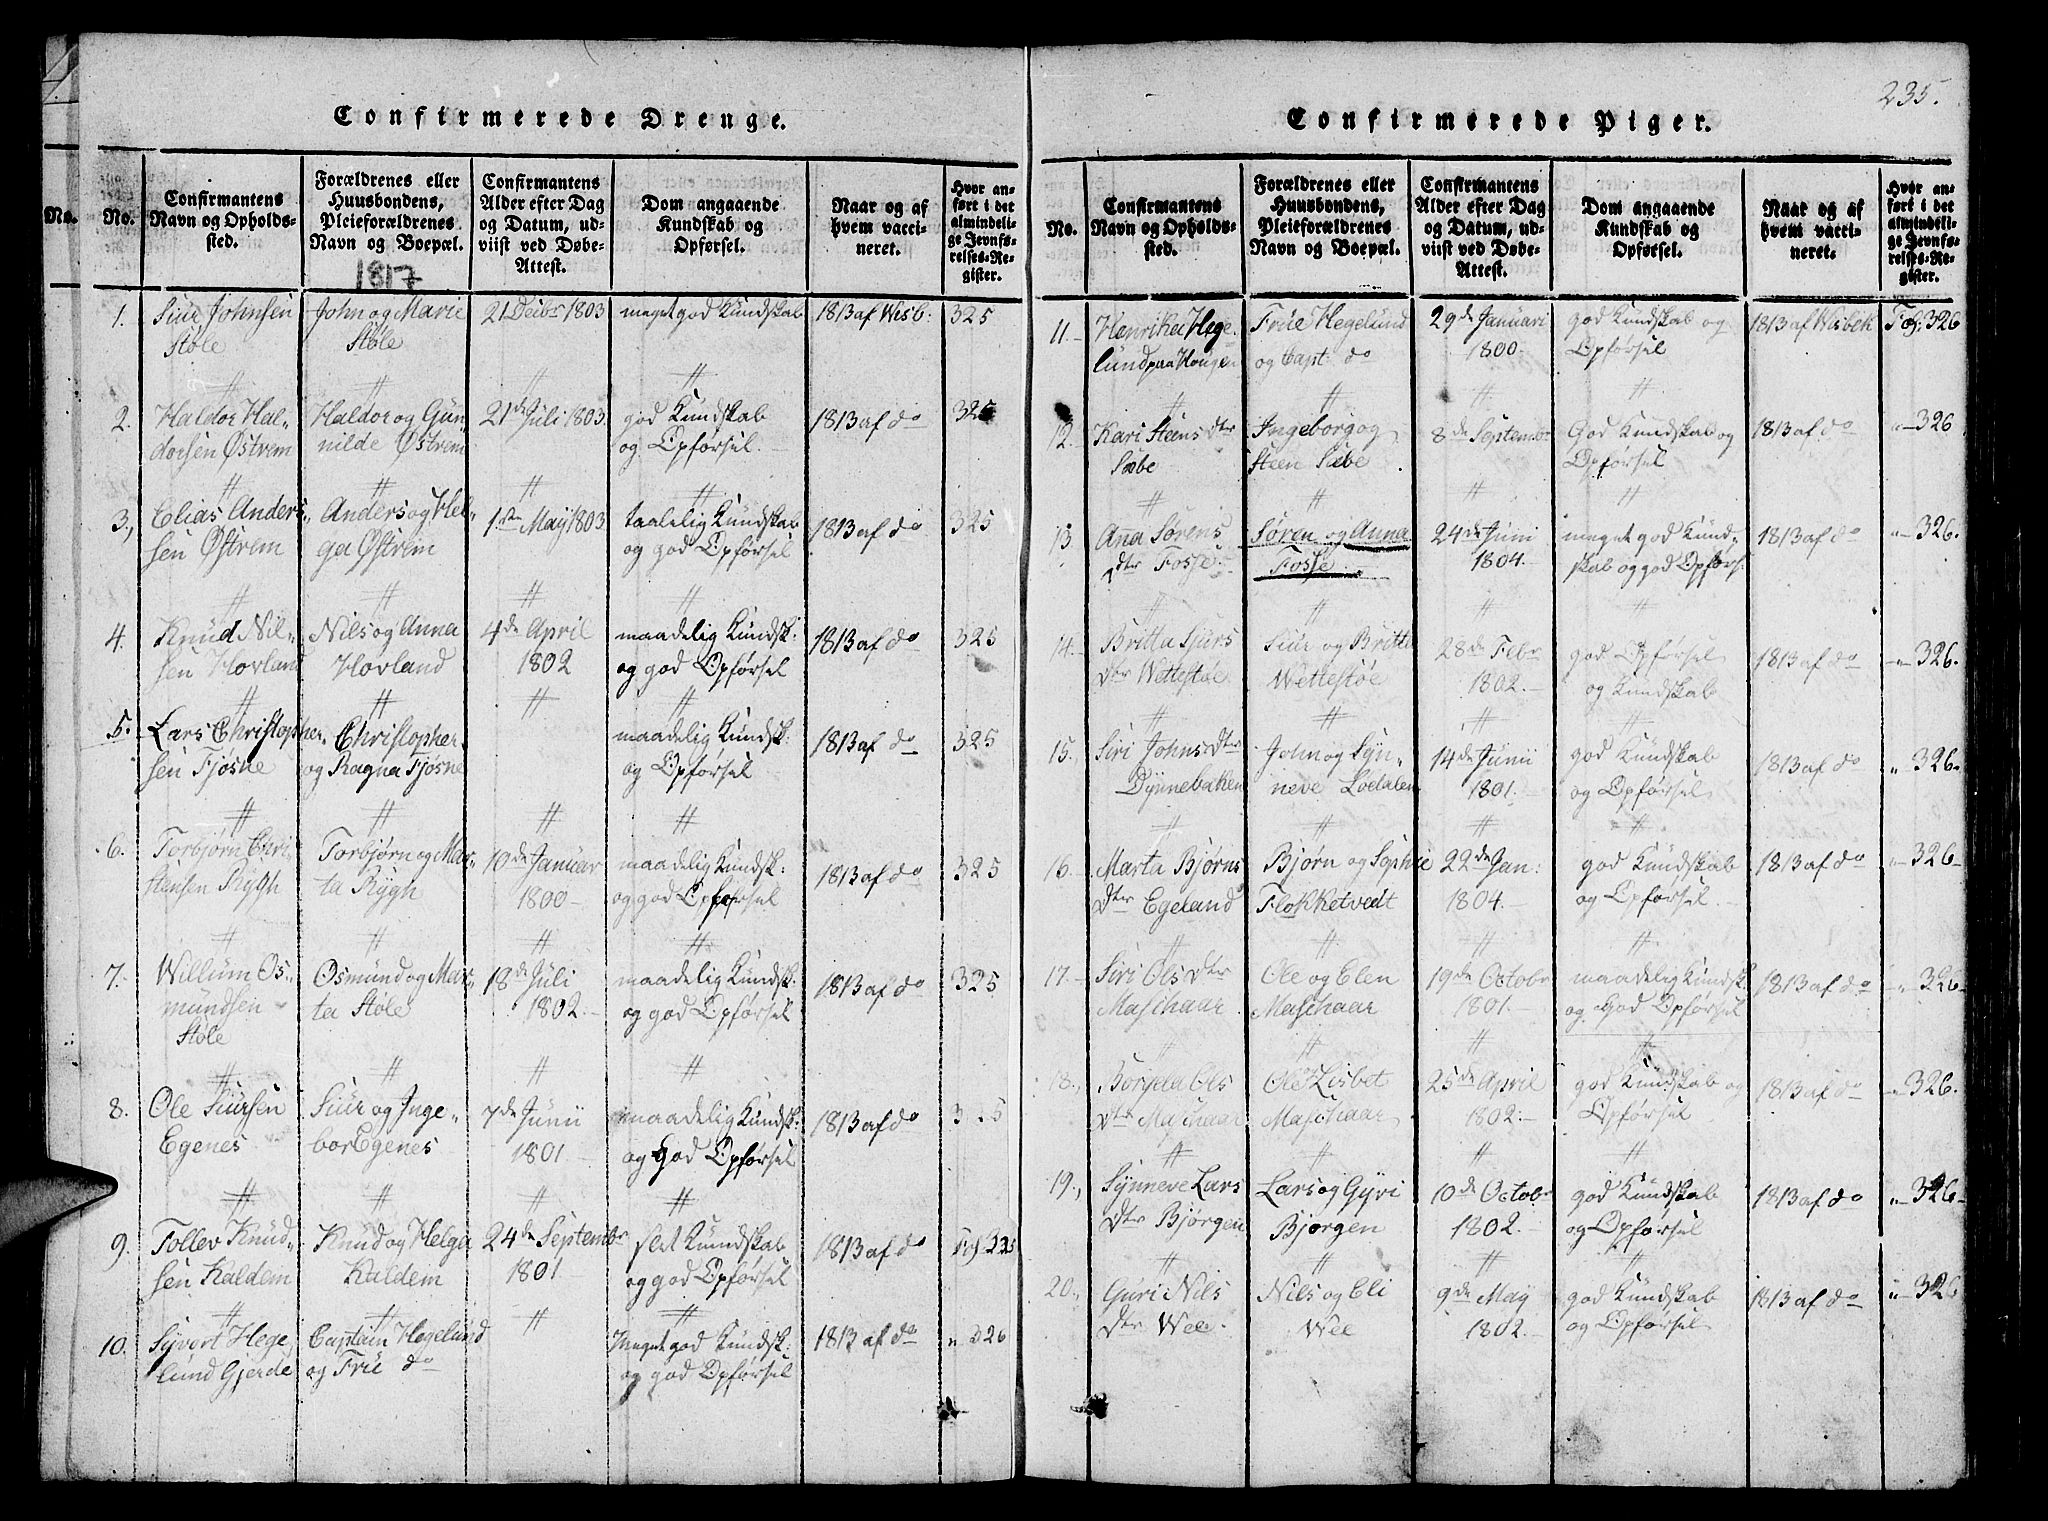 235.
Confirmerede Drenge.
No.
No.
Confirmantens
Navn og Opholds-
sted.
Forældrenes eller
Huusbondens,
Pleieforældrenes
Navn og Boepæl.
Confirmantens
Alder efter Dag
og Datum, ud-
viist ved Døbe-
Attest.
Dom angaaende
Kundskab og
Opførsel.
Naar og af
hvem vacci-
neret.
Hvor an-
ført i det
almindeli-
ge Jevnfø-
relses-Re-
gister.
1817
1.
Siur Johnsen
Støle
John og Marie
Støle
21 Decbr 1803
meget god Kundskab
1813 af Wisb:
325
2.
Haldor Hal-
dorsen Østrem
Haldor og Gün-
nilde Østrem
21de Juli 1803
god Kundskab
og Opførsel.
1813 af do
325
3.
Elias Anders-
sen Østrem
Anders og Hel-
ga Østrem
1ste May 1803
taalelig Kundskab
og god Opførsel
1813 af do
325
4.
Knüd Nil-
sen Hovland
Nils og Anna
Hovland
4de April
1802
maadelig Kundsk:
og god Opførsel
1813 af do
325
5.
Lars Christopher-
sen Fjøsne
Christopher
og Ragna Fjøsne
maadelig Kundsk:
og Opførsel
1813 af do
325
6.
Torbjørn Chri-
stensen Rygh
Torbjørn og Mar-
ta Rygh
10de Januar
1800
maadelig Kundsk:
og god Opførsel
1813 af do
325
7.
Willum Os-
mundsen
Støle
Osmünd og Mar-
ta Støle
18de Juli
1802.
maadelig Kundsk:
og god Opførsel
1813 af do
325
8.
Ole Siursen
Egenes
Siur og Inge-
bor Egenes
7de Junii
1801
maadelig Kundsk:
og god Opførsel
1813 af do
325
9.
Tollev Knüd-
sen Kaldem
Knud og Helga
Kaldem
24de Septembr
1801
slet Kundskab
og god Opførsel
1813 af do
Fol 325
10.
Syvert Hege
lund Gjerde
Captain Hegelund
og Frue do
Meget god Kundsk:
og god Opførsel
1813 af do
" 326
Confirmerede Piger.
No.
Confirmantens
Navn og Opholds-
sted.
Forældrenes eller
Huusbondens,
Pleieforældrenes
Navn og Boepæl.
Confirmantens
Alder efter Dag
og Datum, ud-
viist ved Døbe-
Attest.
Dom angaaende
Kundskab og
Opførsel.
Naar og af
hvem vacci-
neret.
Hvor an-
ført i det
almindeli-
ge Jevnfø-
relses-Re-
gister.
11.
Henrika Hege-
lund paa Haugen
Früe Hegelund
og Capt: do
29de Januari
1800.
god Kundskab og
Opførsel
1813 af Wisbek
Fol: 326
12.
Kari Steens dtr
Sæbe
Ingeborg og
Steen Sæbe
8de Septembr
God Kundskab og
Opførsel
1813 af do
"-326
13
Ana Sørens
dtr Fosse.
Søren og Anna
Fosse.
24de Juni
1804.
meget god Kund-
skab og god Opførs.
1813 af do
"-326.
14.
Britta Sjurs
dtr Wettestøe
Siur og Britte
Wettestøe
28de Febr
1802.
god Opførsel
og Kundskab
1813 af do
"-326.
15.
Siri Johns dtr
Dynnebakken
John og Syn-
neve Lodalen
14de Junii
1801.
god Kundskab
og Opførsel
1813 af do
" 326.
16.
Marta Bjørns
dtr Egeland
Bjørn og Sophie
Flokketvedt
22de Jan:
1804.
god Kundskab
og Opførsel.
1813 af do
"-326
17.
Siri Ols dtr
Mashaar
Ole og Elen
Mashaar
19de Octobr
1801.
maadelig Kundsk
og God Opførsel
1813 af do
" 326
18.
Børgela Ols
dtr Mashaar
Ole Lisbet
Mashaar
25de April
1802.
god Kundskab og
Opførsel
1813 af do
"-326.
19.
Synneve Lars
dtr Bjørgen
Lars og Gyri
Bjørgen
10de Octobr
1802.
god Kundskab
og Opførsel
1813 af do
"-326
20.
Guri Nils
dtr Wee.
Nils og Eli
Wee
9de May
1802.
god Kundskab
og Opførsel
1813 af do
"-326